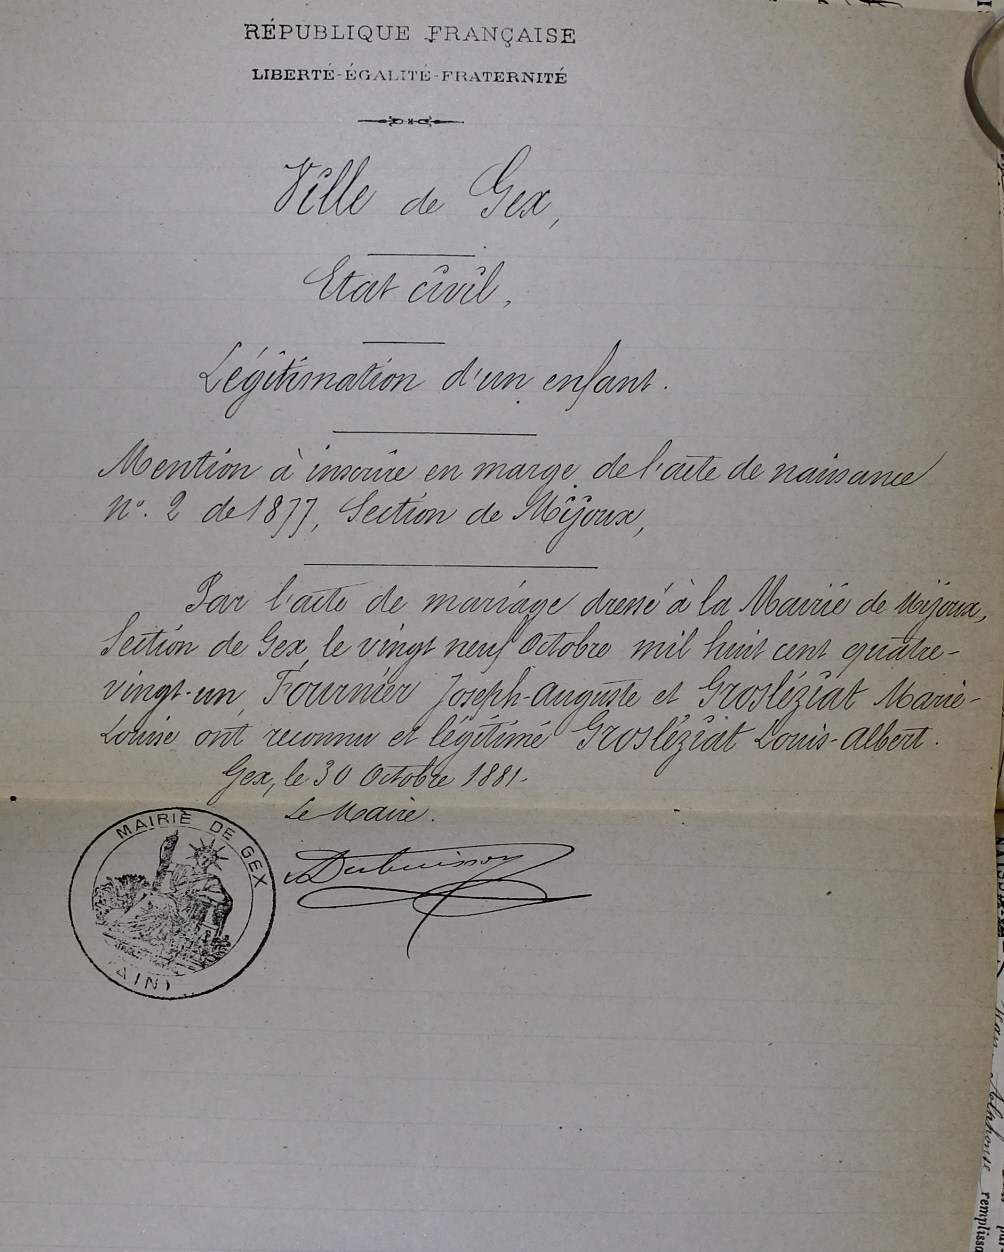 RÉPUBLIQUE FRANÇAISE
LIBERTÉ-ÉGALITÉ-FRATERNITÉ
Ville de Gex,
Etat civil,
Légitimation d'un enfant.
Mention à inscrire en marge de l'acte de naissance
n°. 2 de 1877, Section de Mijoux,
Par l'acte de mariage dressé à la Mairie de Mijoux,
Section de Gex, le vingt neuf Octobre mil huit cent quatre-
vingt-un, Fournier Joseph-Auguste et Grosléziat Marie-
Louise ont reconnu et légitimé Grosléziat Louis-Albert.
Gex, le 30 Octobre 1881.
Le Maire.
Dubuisson
MAIRIE DE GEX
(AIN)
rempliss